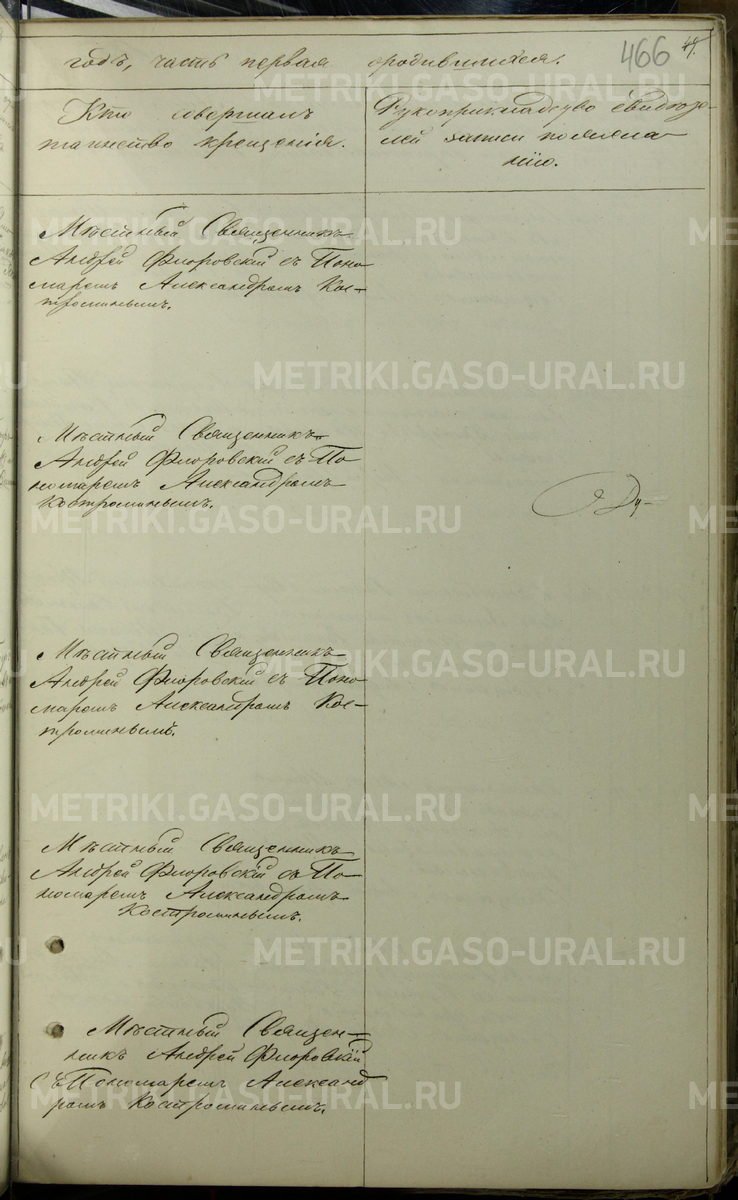 годъ, часть первая о родившихся. 466
Кто совершалъ
таинство крещенія.
Рукоприкладство свидѣте-
лей записи по жела-
нію.
Мѣстный Священникъ
Андрей Флоровскій съ Поно
маремъ Александромъ Кос-
троминымъ.
Мѣстный Священникъ
Андрей Флоровскій съ По
номаремъ Александромъ
Костроминымъ.
Мѣстный Священникъ
Андрей Флоровскій съ Поно
маремъ Александромъ Кос-
троминымъ.
Мѣстный Священникъ
Андрей Флоровскій съ По-
номаремъ Александромъ
Костроминымъ.
Мѣстный Священ-
никъ Андрей Флоровскій
съ Пономаремъ Александ
ромъ Костроминымъ.
METRIKI.GASO-URAL.RU